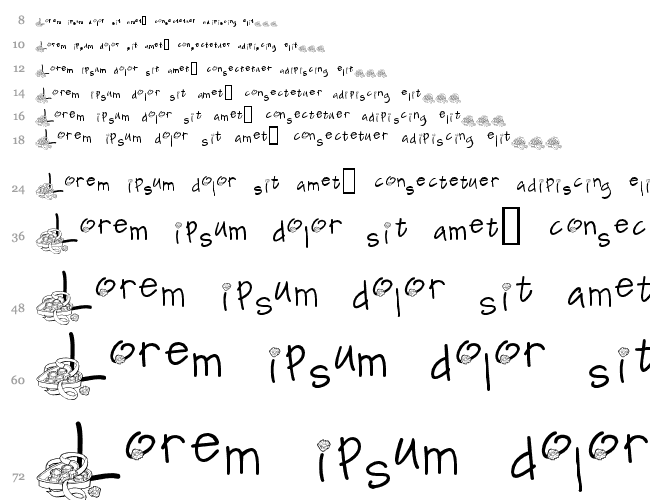 8 Lorem ipsum dolor sit amet▯ consectetuer adipiscing elit
10 Lorem ipsum dolor sit amet▯ consectetuer adipiscing elit
12 Lorem ipsum dolor sit amet▯ consectetuer adipiscing elit
14 Lorem ipsum dolor sit amet▯ consectetuer adipiscing elit
16 Lorem ipsum dolor sit amet▯ consectetuer adipiscing elit
18 Lorem ipsum dolor sit amet▯ consectetuer adipiscing elit
24 Lorem ipsum dolor sit amet▯ consectetuer adipiscing eli
36 Lorem ipsum dolor sit amet▯ consec
48 Lorem ipsum dolor sit amet
60 Lorem ipsum dolor sit
72 Lorem ipsum dolor